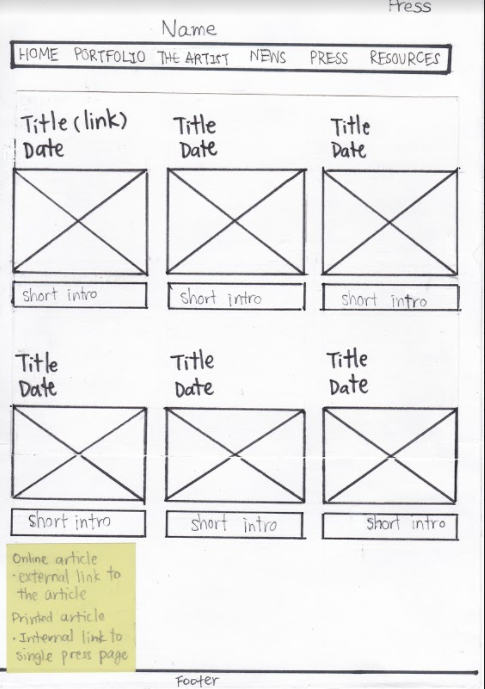 Press
Name
HOME PORTFOLIO THE ARTIST NEWS PRESS RESOURCES
Title (link) Title Title
Date Date Date
short intro short intro short intro
Title Title Title
Date Date Date
short intro short intro short intro
Online article
• external link to
the article
Printed article
• Internal link to
single press page
Footer